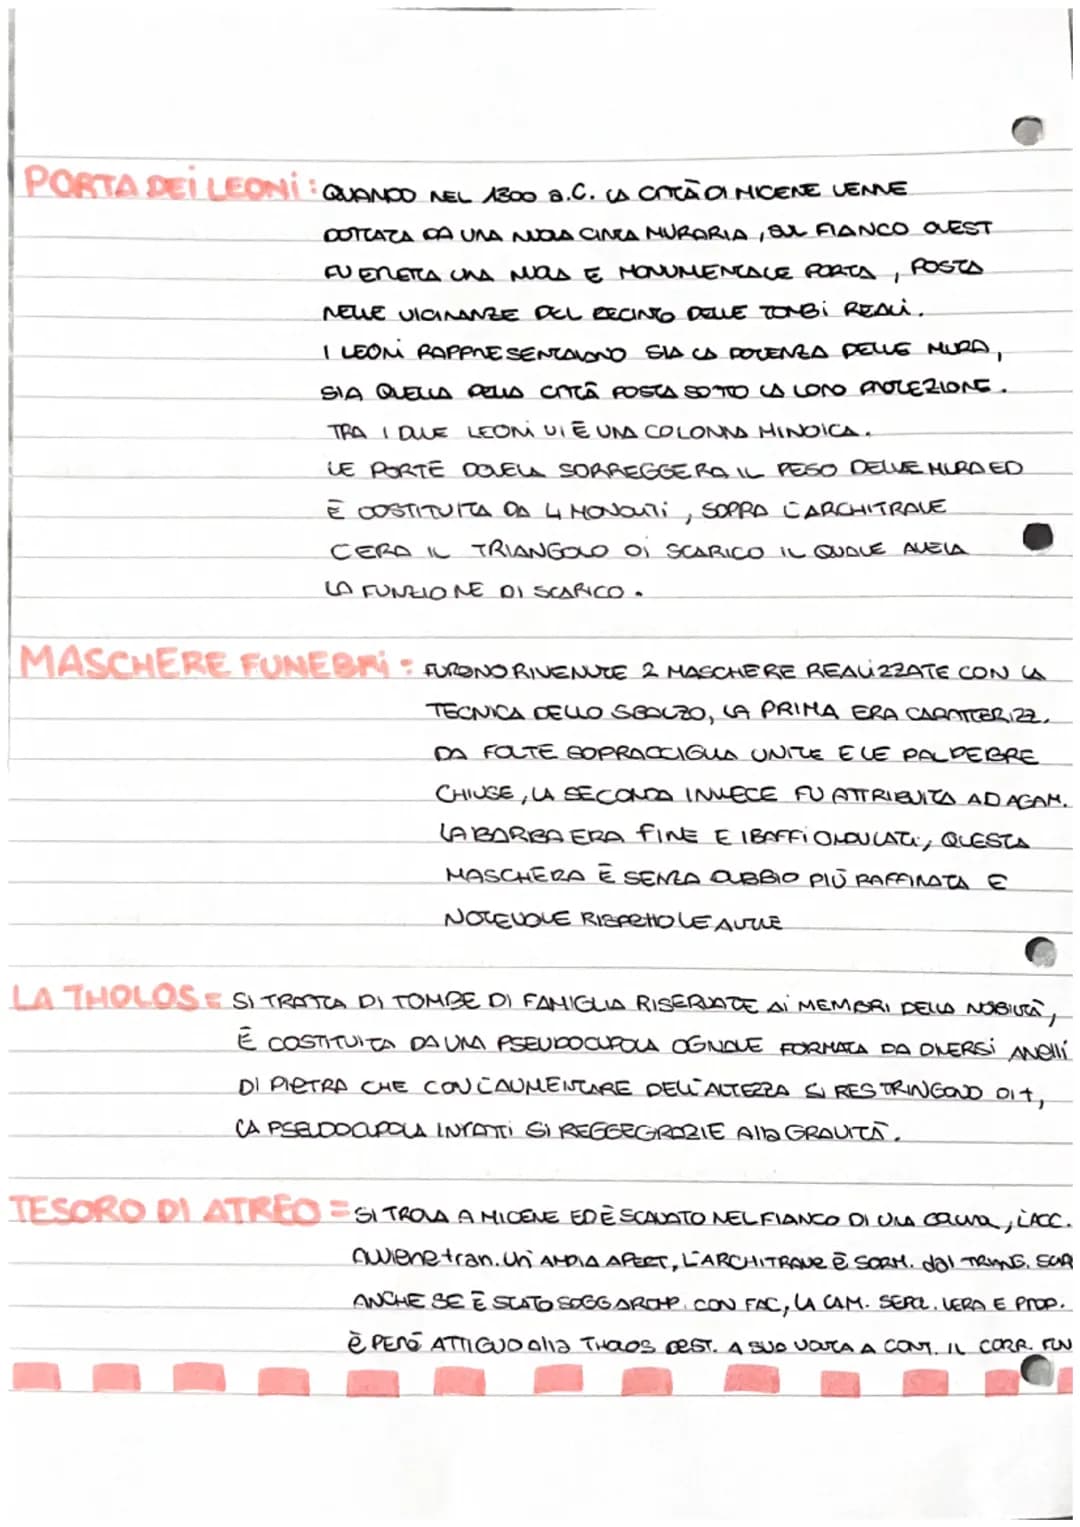 PORTA DEI LEONI: QUANDO NEL 1300 a.C. LA CITTÀ DI MICENE VENNE
DOTTATA DA UNA NUOVA CINTA MURARIA, SUL FIANCO OVEST
FU ERETTA UNA NUOVA E MONUMENTALE PORTA, POSTA
NELLE VICINANZE DEL RECINTO DELLE TOMBI REALI.
I LEONI RAPPRESENTAVANO SIA LA POTENZA DELLE MURA,
SIA QUELLA DELLA CITTÀ POSTA SOTTO LA LORO PROTEZIONE.
TRA I DUE LEONI VI È UNA COLONNA MINOICA.
LE PORTE DOVEVA SORREGGERA IL PESO DELLE MURA ED
È COSTITUITA DA 4 MONOLITI, SOPRA L'ARCHITRAVE
C'ERA IL TRIANGOLO DI SCARICO IL QUALE AVEVA
LA FUNZIONE DI SCARICO.
MASCHERE FUNEBRI: FURONO RIVENUTE 2 MASCHERE REALIZZATE CON LA
TECNICA DELLO SBALZO, LA PRIMA ERA CARATTERIZZ.
DA FOLTE SOPRACCIGLIA UNITE E LE PALPEBRE
CHIUSE, LA SECONDA INVECE FU ATTRIBUITA AD AGAM.
LA BARBA ERA FINE E I BAFFI ONDULATI, QUESTA
MASCHERA È SENZA DUBBIO PIÙ RAFFINATA E
NOTEVOLE RISPETTO LE ALTRE
LA THOLOS= SI TRATTA DI TOMBE DI FAMIGLIA RISERVATE AI MEMBRI DELLA NOBILTÀ,
È COSTITUITA DA UNA PSEUDOCUPOLA OGIVALE FORMATA DA DIVERSI ANELLI
DI PIETRA CHE CON L'AUMENTARE DELL'ALTEZZA SI RESTRINGONO DI +,
LA PSEUDOCUPOLA INFATTI SI REGGE GRAZIE Alla GRAVITÀ.
TESORO DI ATREO = SI TROVA A MICENE ED È SCAVATO NEL FIANCO DI UNA COLLINA, L'ACC.
avviene tran. un' AMPIA APERT, L'ARCHITRAVE È SORM. dal TRIANG. SCAR
ANCHE SE È STATO SOGG ARCHP. CON FAC, LA CAM. SEPOL. VERA E PROP.
È PERÒ ATTIGUO Alla THOLOS DEST. A SUO VOLTA A CONT. IL CORR. FUN